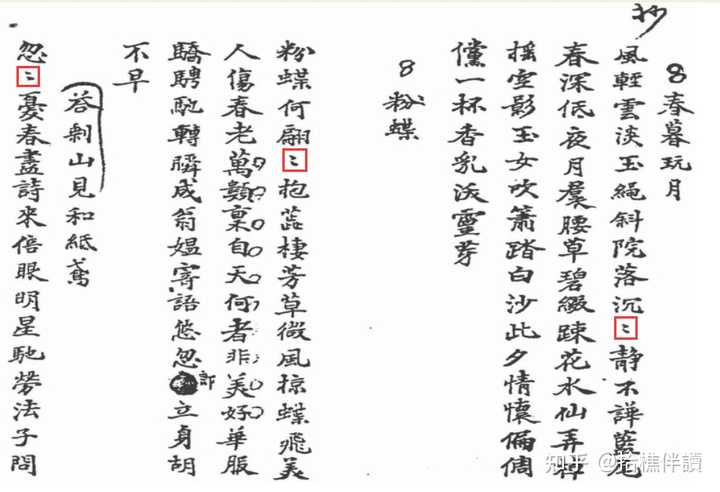 抄
8春暮玩月
風輕雲淡玉繩斜院落沉〻靜不譁藍尾
春深低夜月羣腰草碧綴踈花水仙弄
揺空影玉女吹簫踏白沙此夕情懷偏倜
儻一杯香乳泼靈芽
8粉蝶
粉蝶何翩〻抱蕊棲芳草微風掠蝶飛美
人傷春老萬類稟自天何者非美好華服
驕騁馳轉瞬成翁媼寄語悠忽立身胡
不早
答剩山見和紙鳶
忽〻憂春盡詩來倍眼明星馳勞法子問
知乎 @拾樵伴讀